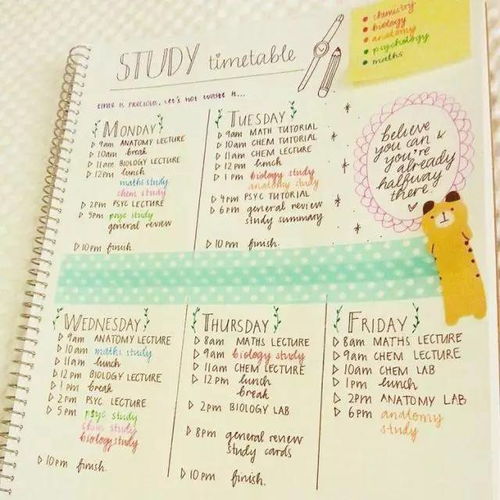 STUDY timetable
time is precious, let's not waste it...
chemistry
biology
anatomy
psychology
maths
MONDAY
9am ANATOMY LECTURE
10am break
11am BIOLOGY LECTURE
12pm lunch
maths study
chem study
2pm PSYC LECTURE
5pm psyc study
general review
10pm finish
TUESDAY
9am MATH TUTORIAL
10am CHEM TUTORIAL
11am CHEM LECTURE
12pm lunch
1pm biology study
anatomy study
4pm PSYC TUTORIAL
6pm general review
study summary
10pm finish
believe
you can &
you're
already
halfway
there
WEDNESDAY
9am ANATOMY LECTURE
10am maths study
11am lunch
12pm BIOLOGY LECTURE
1pm break
2pm PSYC LECTURE
5pm psyc study
chem study
biology study
10pm finish
THURSDAY
8am MATHS LECTURE
9am biology study
11am CHEM LECTURE
12pm lunch
break
2pm BIOLOGY LAB
8pm general review
study cards
10pm finish
FRIDAY
8am MATHS LECTURE
9am CHEM LECTURE
10am CHEM LAB
1pm lunch
2pm ANATOMY LAB
6pm anatomy
study